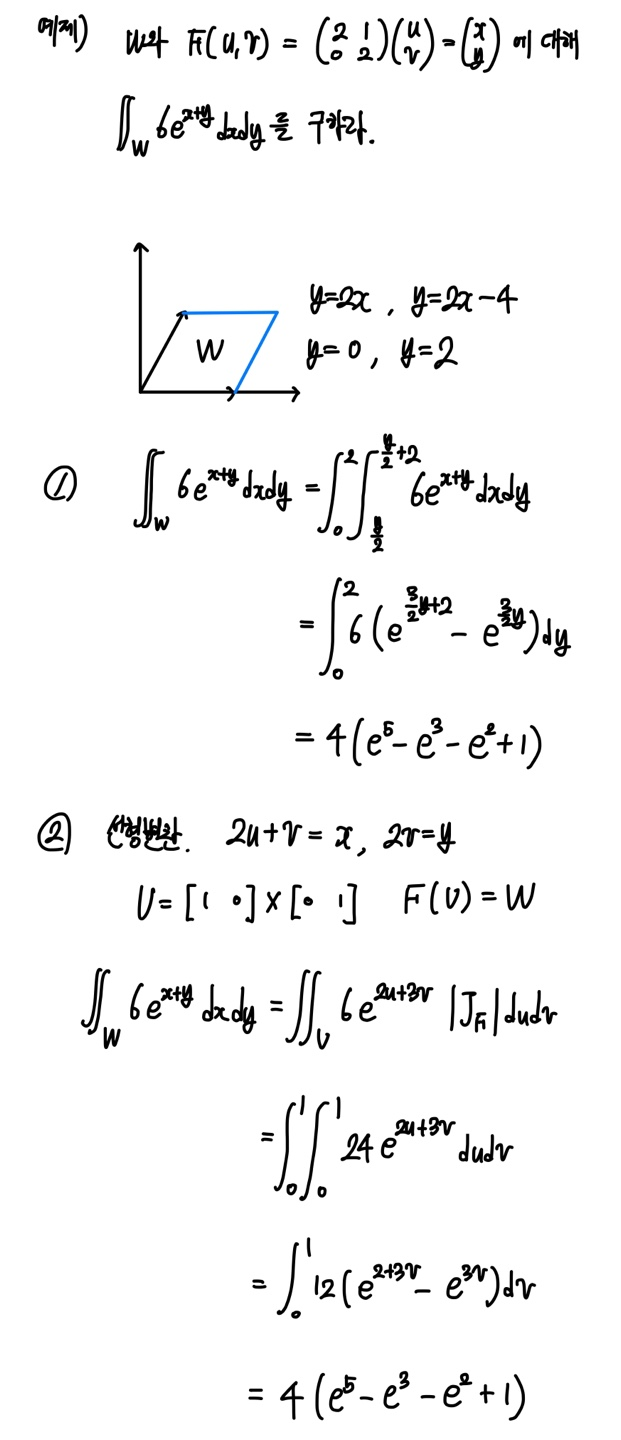 예제) W와 F(u,v) = (2 1 0 2)(u v) = (x y) 에 대해
∬_W 6e^{x+y} dxdy를 구하라.
y=2x , y=2x-4
W y=0 , y=2
① ∬_W 6e^{x+y} dxdy = ∫_0^2 ∫_{y/2}^{y/2+2} 6e^{x+y} dxdy
= ∫_0^2 6(e^{3/2y+2} - e^{3/2y})dy
= 4(e^5 - e^3 - e^2 + 1)
② 선형변환. 2u+v = x, 2v=y
U = [1 0] × [0 1] F(U) = W
∬_W 6e^{x+y} dxdy = ∬_U 6e^{2u+3v} |J_F| dudv
= ∫_0^1 ∫_0^1 24e^{2u+3v} dudv
= ∫_0^1 12(e^{2+3v} - e^{3v})dv
= 4(e^5 - e^3 - e^2 + 1)